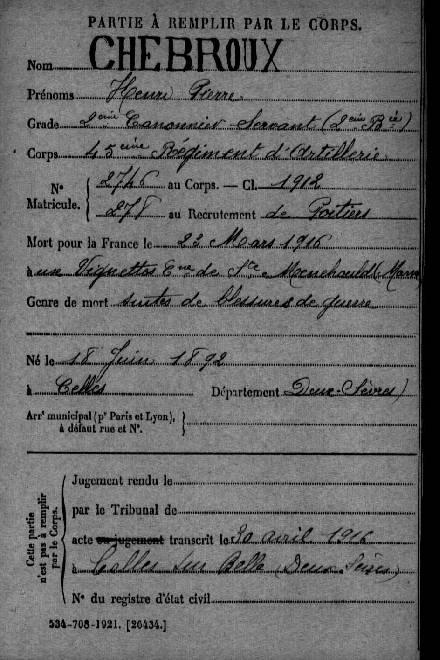 PARTIE À REMPLIR PAR LE CORPS.
Nom CHEBROUX
Prénoms Henri Pierre
Grade 2eme Canonnier Servant (2eme Bie)
Corps 45eme Régiment d'Artillerie
N° Matricule. { 2746 au Corps. — Cl. 1912
278 au Recrutement de Poitiers
Mort pour la France le 22 Mars 1916
à aux Vignettes Cne de Ste Menehould (Marne
Genre de mort suites de blessures de guerre
Né le 18 Juin 1892
à Celles Département Deux-Sèvres)
Arrt municipal (pr Paris et Lyon), à défaut rue et N°. }
Cette partie n'est pas à remplir par le Corps.
Jugement rendu le
par le Tribunal de
acte ou jugement transcrit le 30 avril 1916
à Celles sur Belle (Deux Sèvres)
N° du registre d'état civil
534-708-1921. [26434.]